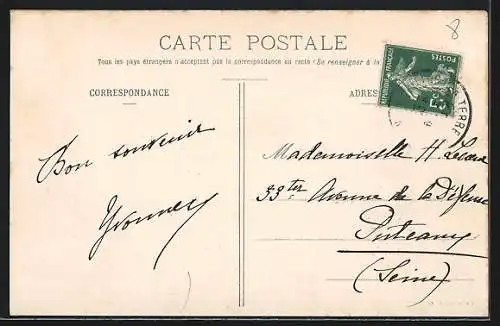 8
CARTE POSTALE
Tous les pays étrangers n'acceptent pas la correspondance au recto (Se renseigner à la
POSTES
RÉPUBLIQUE FRANÇAISE
TERRE
CORRESPONDANCE
ADRES
Bon souvenir
Yvonne
Mademoiselle H
33ter Avenue de la Défense
Puteaux
(Seine)